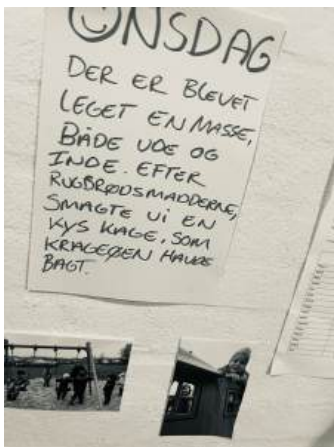 ONSDAG
DER ER BLEVET
LEGET EN MASSE,
BÅDE UDE OG
INDE. EFTER
RUGBRØDSMADDERNE,
SMAGTE VI EN
KYS KAGE, SOM
KRAGEØEN HAVDE
BAGT.